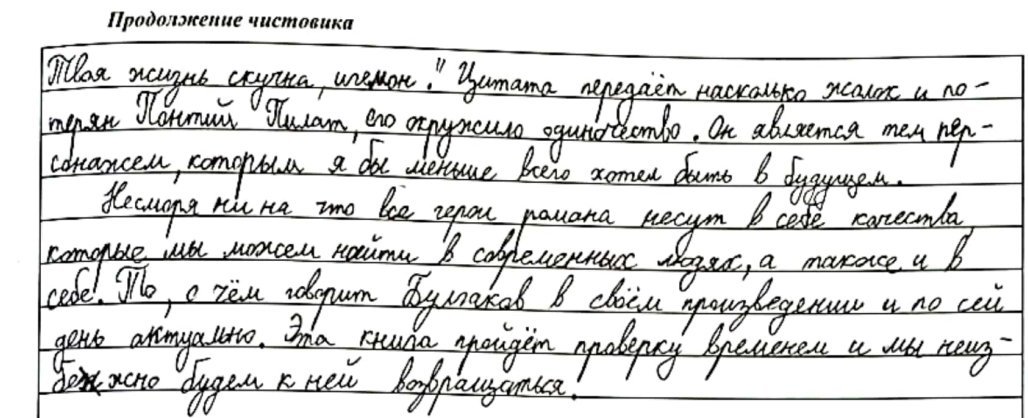 Продолжение чистовика
Твоя жизнь скучна, игемон." Цитата передаёт насколько жалок и по-
терян Понтий Пилат, его окружило одиночество. Он является тем пер-
сонажем, которым я бы меньше всего хотел быть в будущем.
Несморя ни на что все герои романа несут в себе качества,
которые мы можем найти в современных людях, а также и в
себе. То, о чём говорит Булгаков в своём произведении и по сей
день актуально. Эта книга пройдёт проверку временем и мы неиз-
бежно будем к ней возвращаться.